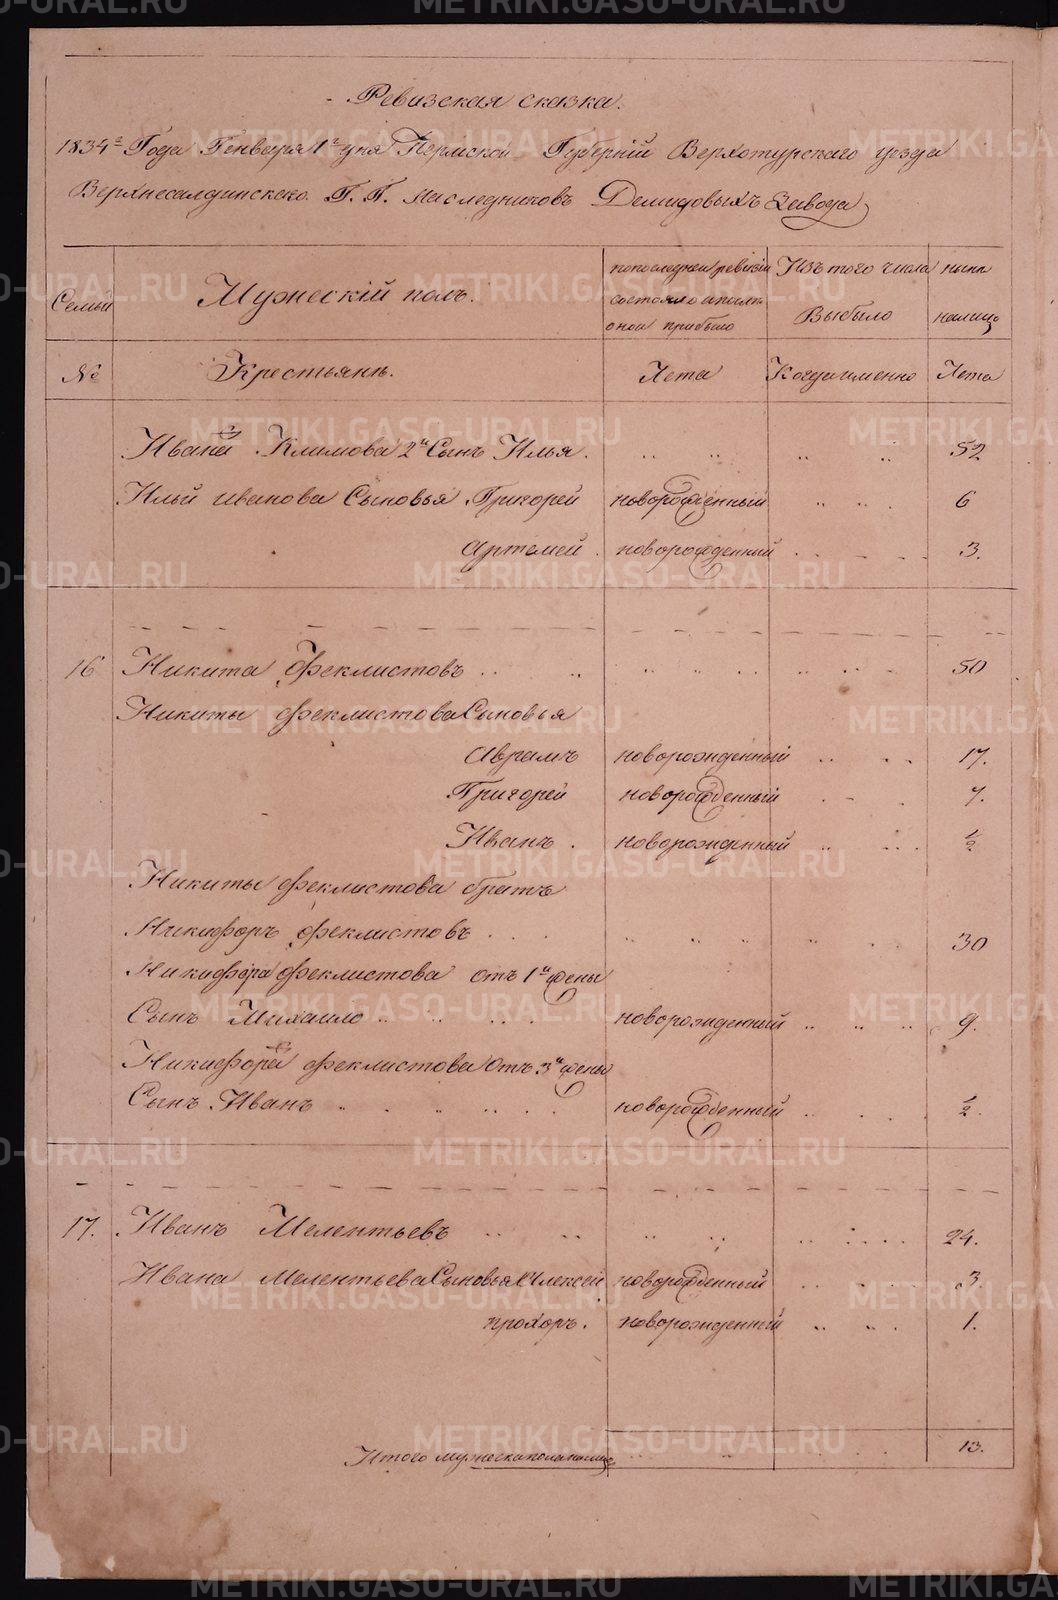 Ревизская сказка.
1834го Года Генваря 1го дня Пермской Губерніи Верхотурскаго уезда
Верхнесалдинскаго Г. Г. Наследниковъ Демидовыхъ Завода
Семьи Мужескій полъ. попоследней ревизіи состояло ипосле оной прибыло Изъ того числа Выбыло ныне налицо
№ Крестьяне. Лета Когдаименно Лета
Ивана Климова 2й Сынъ Илья. 52
Ильи иванова Сыновья Григорей новорожденный 6
Артемей новорожденный 3.
16 Никита Феклистовъ 50
Никиты феклистова Сыновья
Аврамъ новорожденный 17.
Григорей новорожденный 7.
Иванъ. новорожденный ½
Никиты феклистова братъ
Никифоръ феклистовъ 30
Никифора феклистова отъ 1й жены
Сынъ Михаило новорожденный 9.
Никифора феклистова отъ 3й жены
Сынъ Иванъ новорожденный ½.
17. Иванъ Мелентьевъ 24.
Ивана Мелентьева Сыновья Алексей новорожденный 3
прохоръ. новорожденный 1.
Итого мужеска пола налицо 13.
METRIKI.GASO-URAL.RU